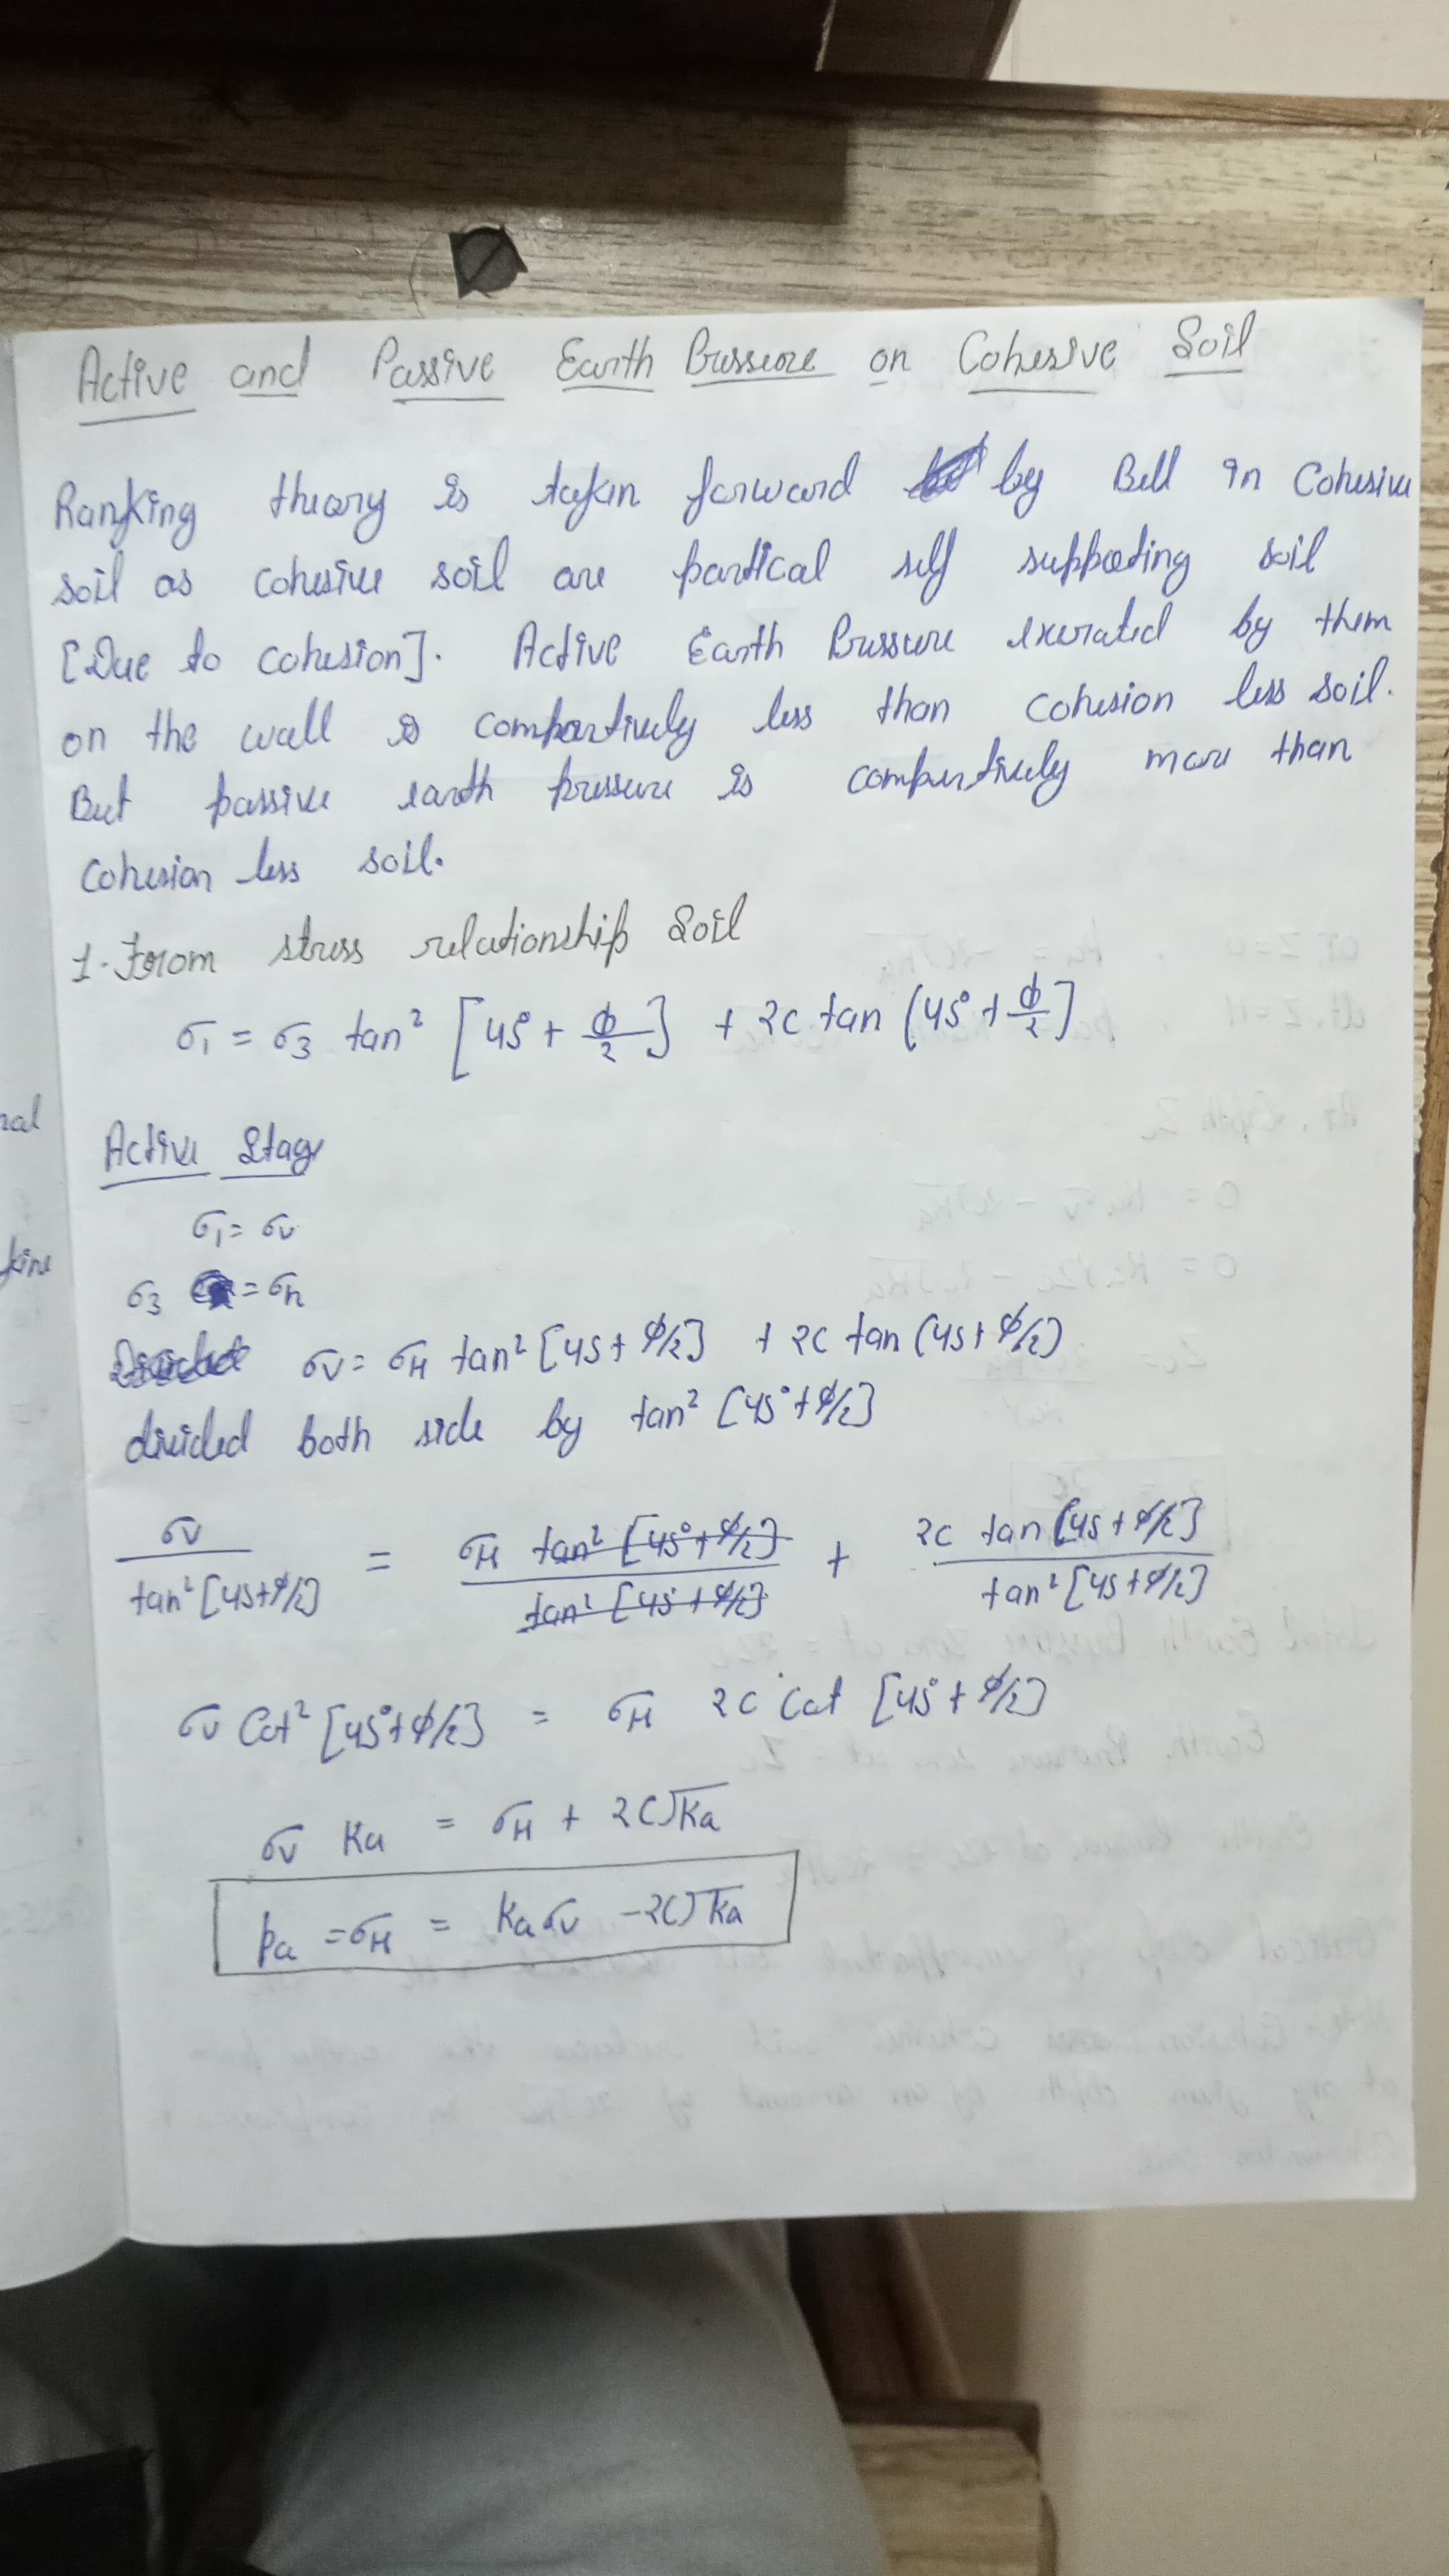 Active and Passive Earth Pressure on Cohesive Soil
Ranking theory is taken forward by Bell in Cohesive
soil as cohesive soil are partical self supporting soil
[Due to cohesion]. Active Earth Pressure exerated by them
on the wall is compartively less than cohesion less soil.
But passive earth pressure is compartively more than
cohesion less soil.
1. From stress relationship Soil
σ1 = σ3 tan² [45° + φ/2] + 2c tan (45° + φ/2]
Active Stage
σ1 = σv
σ3 = σh
σv = σH tan² [45 + φ/2] + 2c tan (45 + φ/2)
divided both side by tan² [45° + φ/2]
σv / tan² [45 + φ/2] = σH tan² [45° + φ/2] / tan² [45 + φ/2] + 2c tan [45 + φ/2] / tan² [45 + φ/2]
σv Cot² [45° + φ/2] = σH 2c Cot [45° + φ/2]
σv Ka = σH + 2C√Ka
pa = σH = Ka σv - 2C√Ka